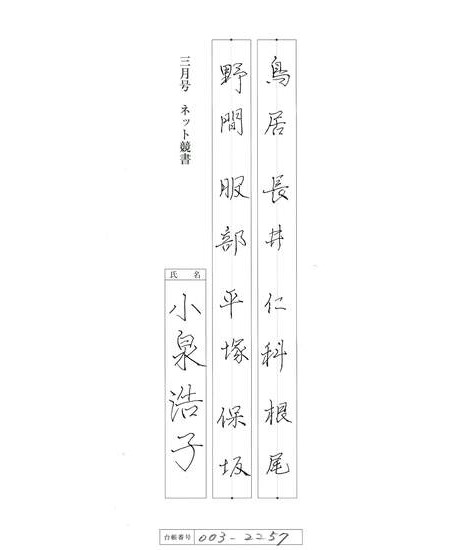 鳥居 長井 仁科 根尾
野間 服部 平塚 保坂
三月号 ネット競書
氏 名
小泉浩子
台帳番号 003-2257